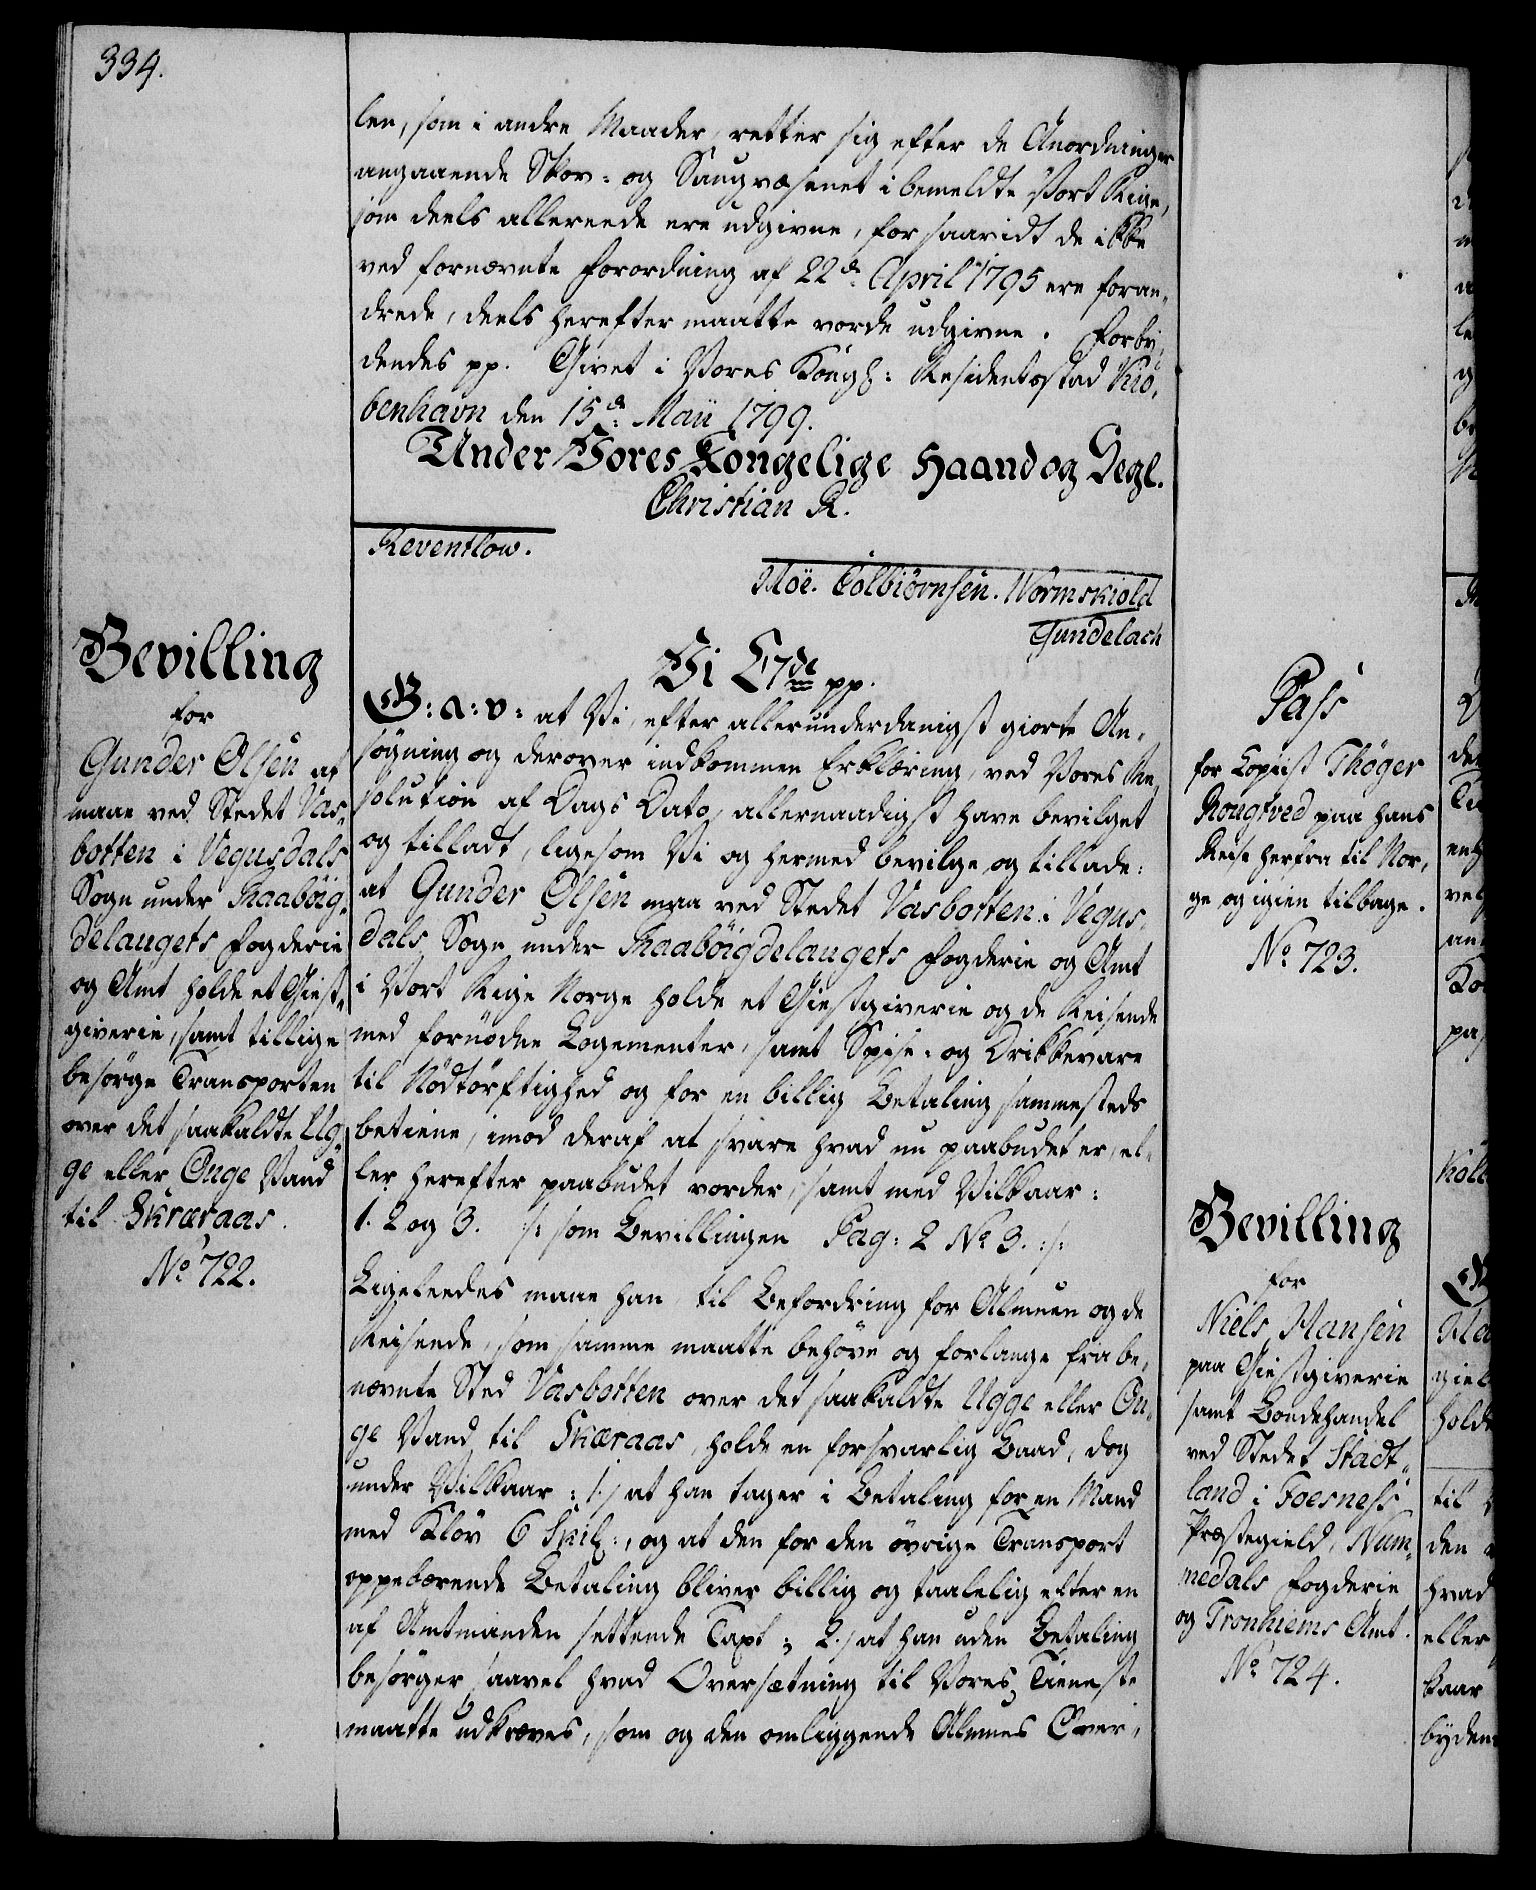 334.
len, som i andre Maader, retter sig efter de Anordninger
angaaende Skov- og Saugvæsenet i bemeldte Vort Rige,
som deels allereede ere udgivne, forsaavidt de ikke
ved fornævnte Forordning af 22d. April 1795 ere foran-
drede, deels herefter maatte vorde udgivne. Forby-
dendes pp. Givet i Vores Kongl: Residentsstad Kiø-
benhavn den 15d: Maii 1799.
Under Vores Kongelige Haand og Segl.
Christian R.
Reventlow.
Moe. Colbiörnsen. Wormskiold
Gundelach
Bevilling
for
Gunder Olsen at
maae ved Stedet Vas-
botten i Vegusdals
Sogn under Raaböig-
delaugets Fogderie
og Amt holde et Giest-
giverie, samt tillige
besørge Transporten
over det saakaldte Ug-
ge eller Ouge Vand
til Skræraas.
No 722.
Vi C7de pp.
G: a: v: at Vi, efter allerunderdanigst giorte An-
søgning og derover indkommen Erklæring, ved Vores Re-
solution af Dags Dato, allernaadigst have bevilget
og tilladt, ligesom Vi og hermed bevilge og tillade:
at Gunder Olsen maa ved Stedet Vasbotten i Vegus-
dals Sogn under Raaböigdelaugets Fogderie og Amt
i Vort Rige Norge holde et Giestgiverie og de Reisende
med fornødne Logementer, samt Spise- og Drikkevare
til Nødtørftighed og for en billig Betaling sammesteds
betiene, imod deraf at svare hvad nu paabudet er, el-
ler herefter paabudet vorder, samt med Vilkaar:
1. 2 og 3. /: som Bevillingen Pag: 2 No 3. :/
Ligeleedes maae han til Befordring for Almuen og de
Reisende, som samme maatte behøve og forlange fra be-
nævnte Sted Vasbotten over det saakaldte Ugge eller Ou-
ge Vand til Skæraas holde en forsvarlig Baad, dog
under Vilkaar: 1.) at han tager i Betaling for en Mand
med Kløv 6 Skil:, og at den for den øvrige Transport
oppebærende Betaling bliver billig og taalelig efter en
af Amtmanden settende Taxt; 2.) at han uden Betaling
besørger saavel hvad Oversætning til Vores Tieneste
maatte udkræves, som og den omliggende Almues Over-
Pass
for Copiist Thøger
Rougtved paa hans
Reise herfra til Nor-
ge og igien tilbage.
No 723.
Bevilling
for
Niels Hansen
paa Giestgiverie
samt Bondehandel
ved Stedet Stadt-
land i Foesness
Præstegield, Num-
medals Fogderie
og Tronhiems Amt.
No 724.